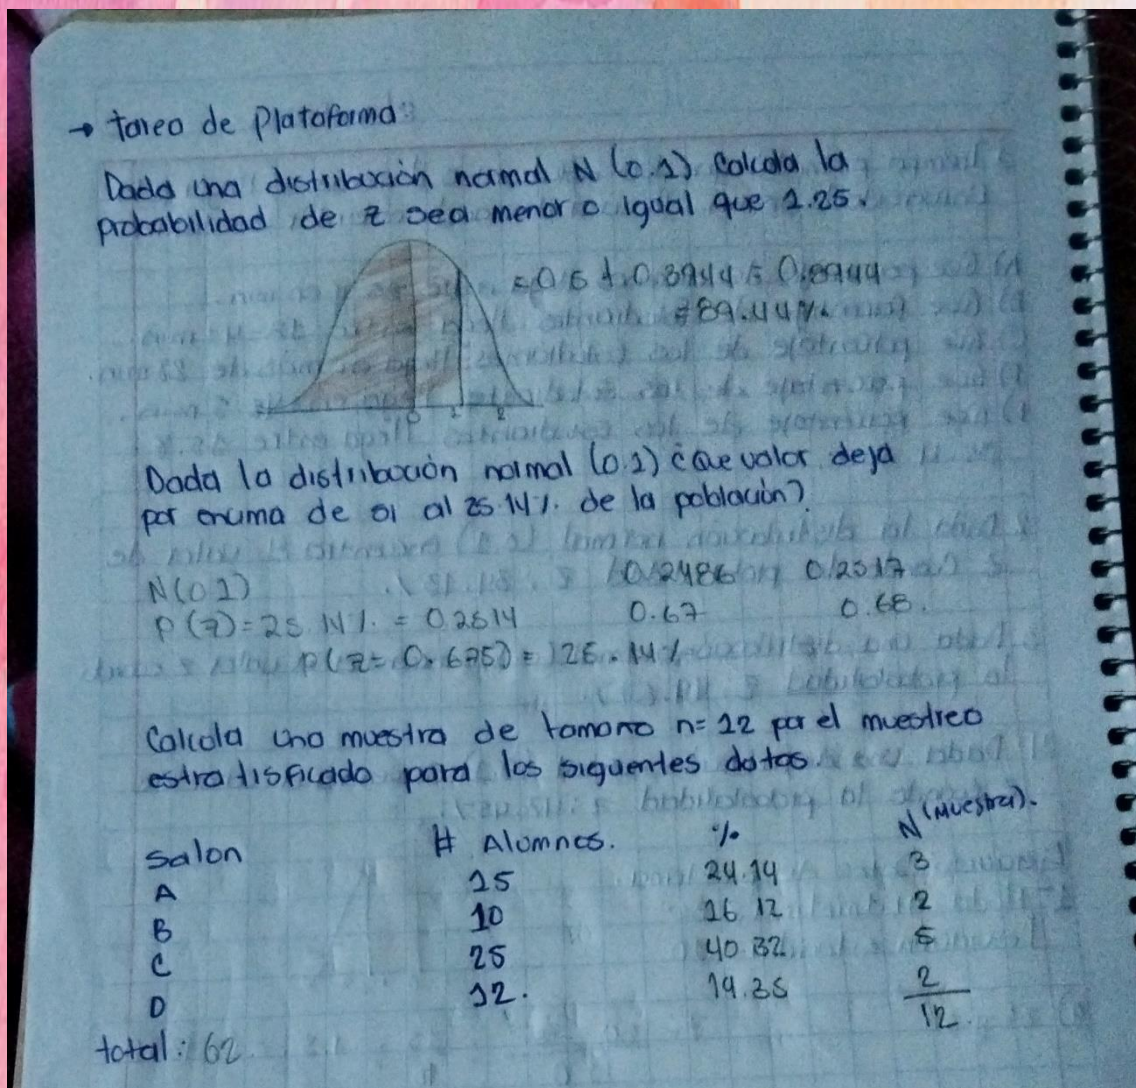 → tarea de Plataforma:
Dada una distribución normal N (0.1) Calcula la
probabilidad de z sea menor o igual que 1.25.
= 0.5 + 0.3944 = 0.8944
= 89.44%
0 1 2
Dada la distribución normal (0.1) ¿Que valor deja
por encima de si al 25.14%. de la población?
N(0 1) 0.2486 0.2517
P (z) = 25.14%. = 0.2514 0.67 0.68.
P(z = 0.675) = 25.14%
Calcula una muestra de tamano n= 12 por el muestreo
estratisficado para los siguentes datos.
Salon # Alumnos. % N (Muestra).
A 15 24.14 3
B 10 16 12 2
C 25 40 32 5
D 12. 19.35 2
12.
total: 62